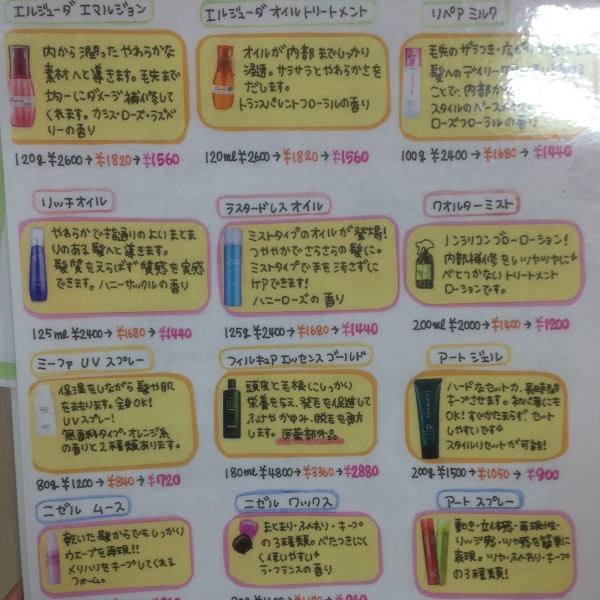 エルジューダ エマルジョン
内から潤ったやわらかな
素材へと導きます。毛先まで
均一にダメージ補修して
くれます。カシス・ローズ・ラズベ
リーの香り
120g ¥2600→¥1820→¥1560
エルジューダ オイルトリートメント
オイルが内部までしっかり
浸透。サラサラとやわらかさを
だします。
トランスパレントフローラルの香り
120ml ¥2600→¥1820→¥1560
リペア ミルク
毛先のザラつき・広がり
髪へのデイリーケア
ことで、内部から
スタイルのベース
ローズフローラルの香り
100g ¥2400→¥1680→¥1440
リッチオイル
やわらかで指通りのよいまとま
りのある髪へと導きます。
髪質をえらばず質感を実感
できます。ハニーサックルの香り
125ml ¥2400→¥1680→¥1440
ラスタードレス オイル
ミストタイプのオイルが登場!
つややかでさらさらの髪に。
ミストタイプで手を汚さずに
ケアできます!
ハニーローズの香り
125g ¥2400→¥1680→¥1440
ウオルターミスト
ノンシリコンブローローション!
内部補修をしツヤツヤに
べとつかないトリートメント
ローションです。
200ml ¥2000→¥1400→¥1200
ミーファ UV スプレー
保湿をしながら髪や肌
をまもります。全身OK!
UVスプレー!
無香料タイプ・オレンジ系
の香りと2種類あります。
80g ¥1200→¥840→¥720
フィルキュア エッセンス ゴールド
頭皮と毛根にしっかり
栄養を与え、発毛を促進して
ふけやかゆみ、脱毛を防ぎ
します。医薬部外品。
180ml ¥4800→¥3360→¥2880
アート ジェル
ハードなセット力、長時間
キープさせます。初心者にも
OK!すぐかたまらず、セット
しやすいです
スタイルリセットが可能!
200g ¥1500→¥1050→¥900
ニゼル ムース
乾いた髪からでもしっかり
ウエーブを再現!!
メリハリをキープしてくれる
フォーム。
ニゼル ワックス
まとまり・ふんわり・キープ
の3種類。べたつきにく
く使いやすい
ラ・フランスの香り
アート スプレー
動き・立体感・再現性・
リッジ感・ツヤ感を簡単に
表現。ツヤ・ふんわり・キープ
の3種類!